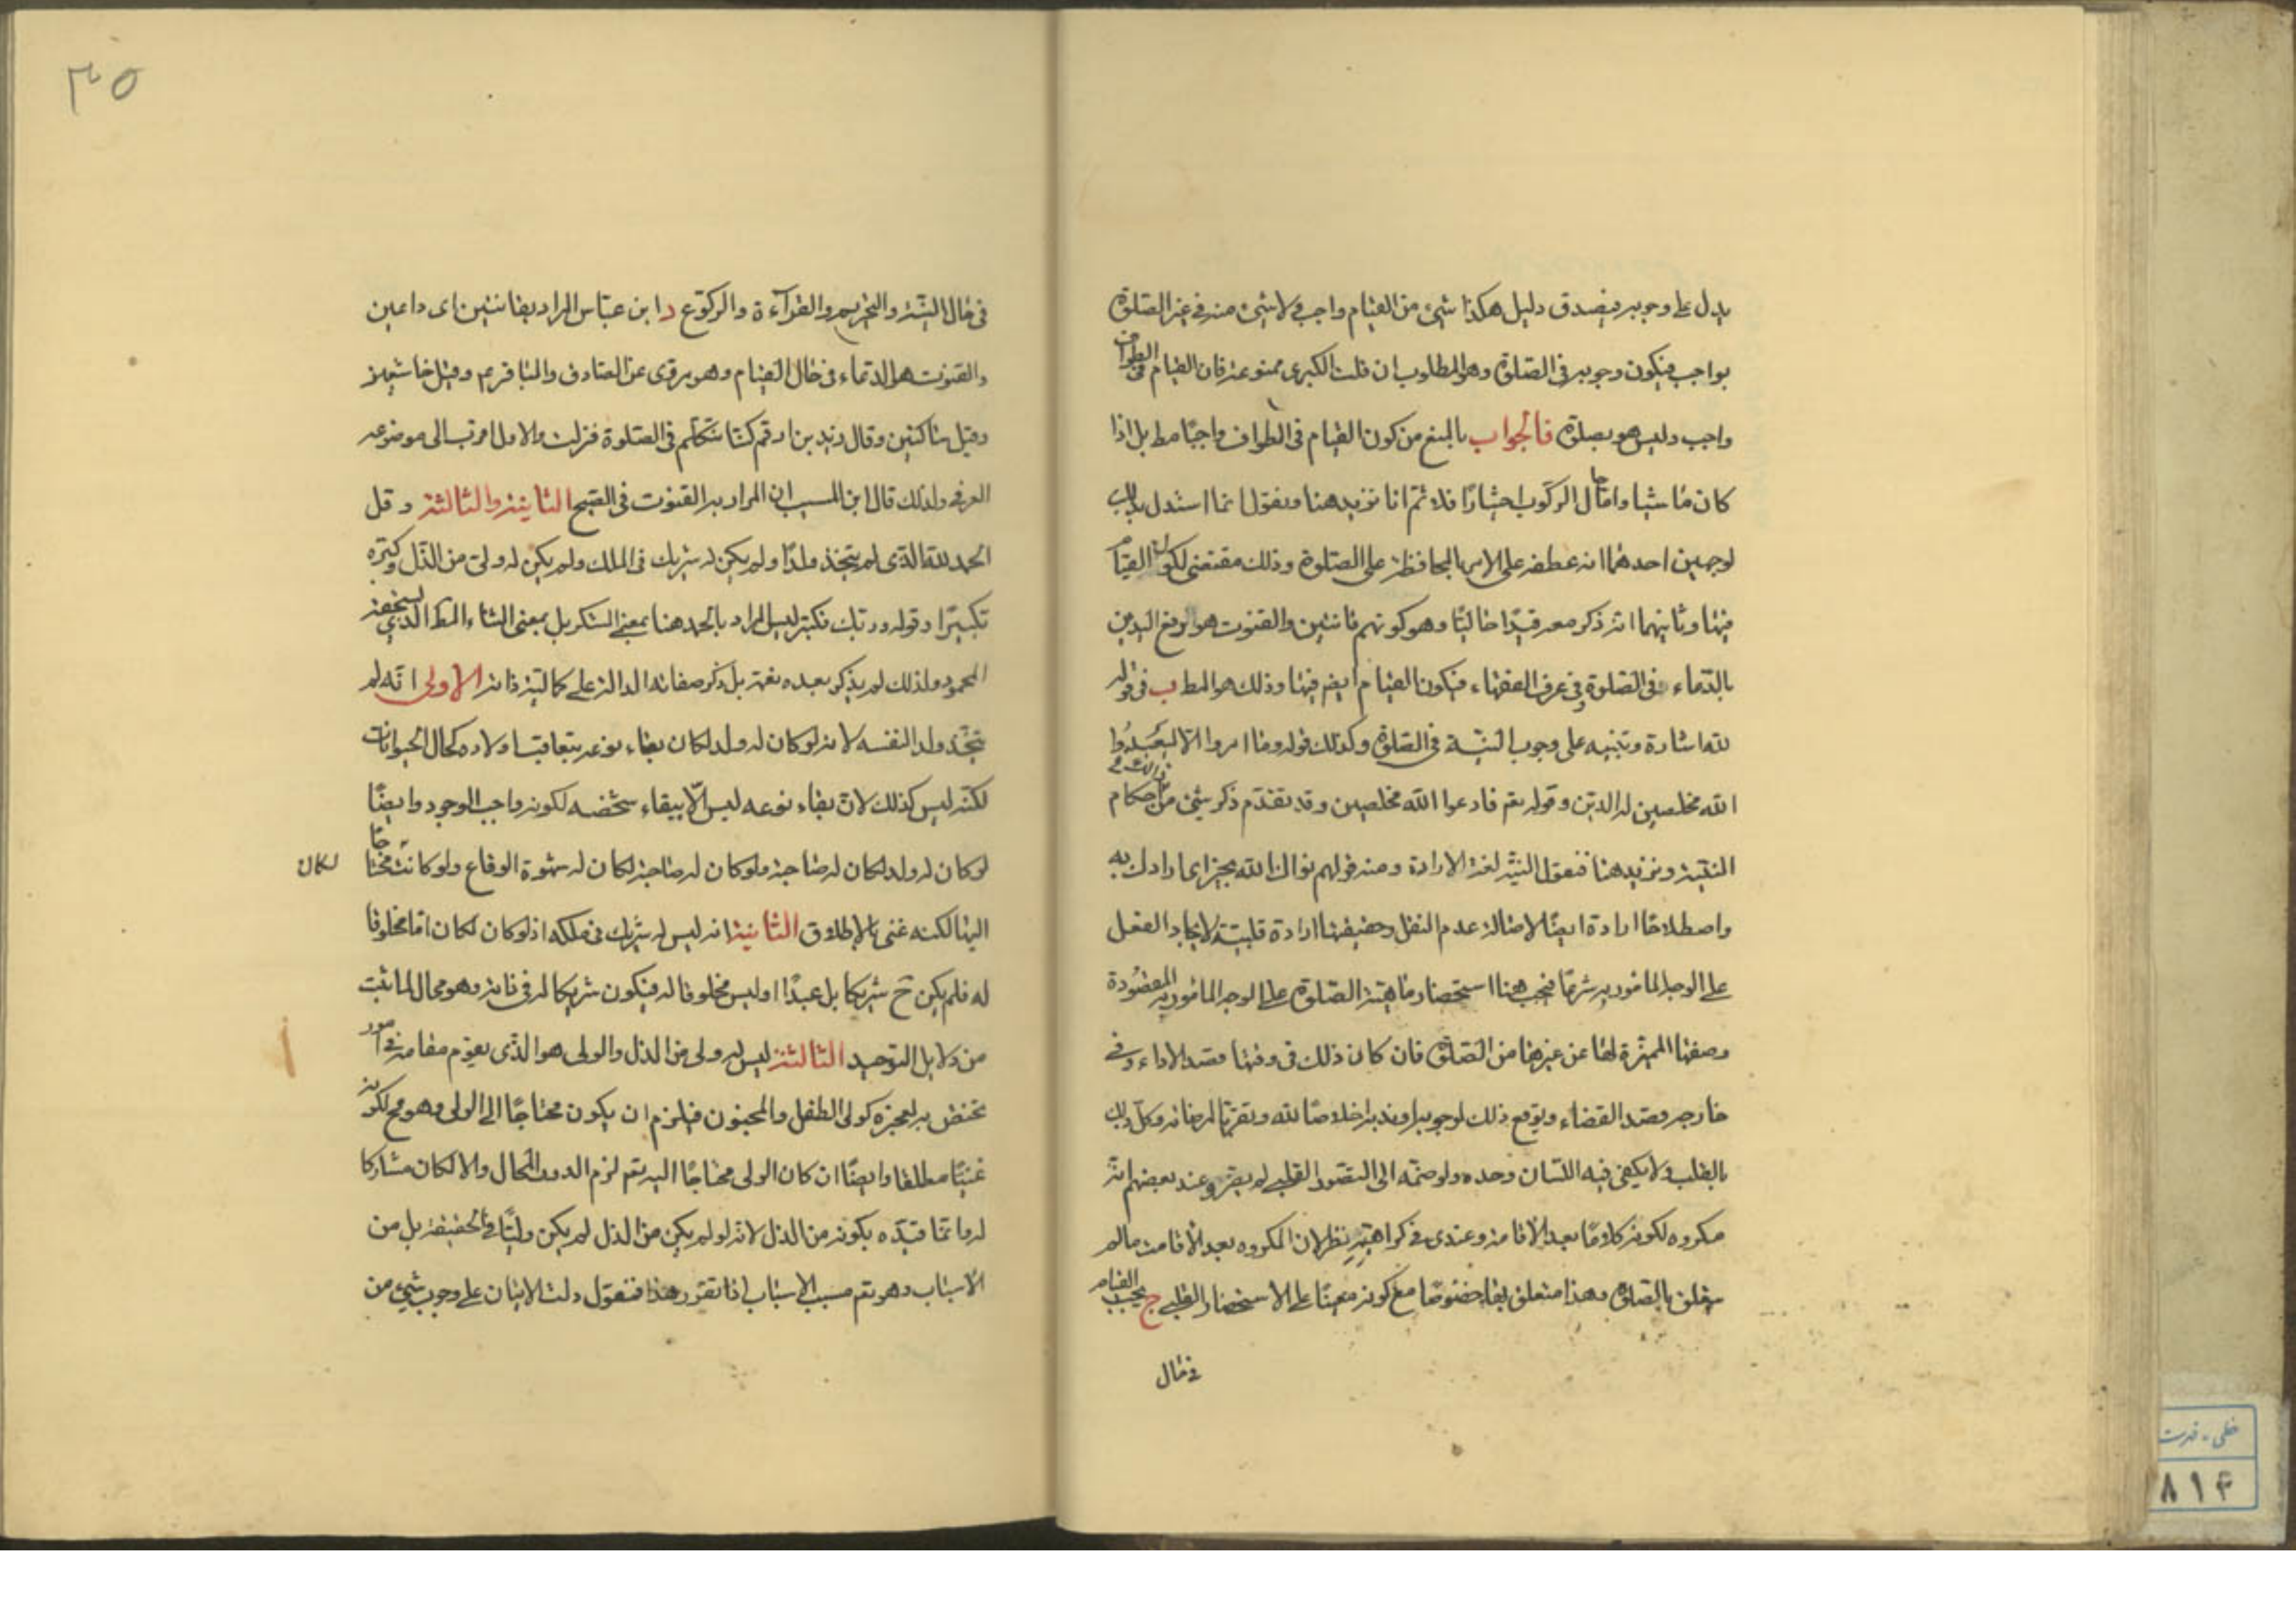 يدل على وجوبه فيصدق دليل هكذا شئ من القيام واجب ولا شئ منه فى غير الصلوة
بواجب فيكون وجوبه فى الصلوة وهو المطلوب ان قلت الكبرى ممنوعة فان القيام فى الطواف
واجب وليس هو بصلوة فالجواب بالمنع من كون القيام فى الطواف واجبًا مط بل اذا
كان ماشيا واما حال الركوب اختيارًا فلا ثم انا نزيد هنا ونقول انما استدل بذلك
لوجهين احدهما انه عطفه على الامر بالمحافظة على الصلوة وذلك مقتضى لكون القيام
فيها وثانيهما انه ذكر معه قيدًا حاليًا وهو كونهم قانتين والقنوت هو رفع اليدين
بالدعاء فى الصلوة فى عرف الفقهاء فيكون القيام ايضم فيها وذلك هو المط ب فى قوله
لله اشارة وتنبيه على وجوب النية فى الصلوة وكذلك قوله وما امروا الا ليعبدوا
الله مخلصين له الدين وقوله تعم فادعوا الله مخلصين وقد تقدم ذكر شئ من احكام
النية ونزيد هنا فنقول النية لغة الارادة ومنه قولهم نواك الله بخير اى ارادك به
واصطلاحًا ارادة ايضًا لاصالة عدم النقل وحقيقتها ارادة قلبية لايجاد الفعل
على الوجه المامور به شرعًا فيجب هنا استحضار ماهية الصلوة على الوجه المامور به المقصودة
وصفتها المميزة لها عن غيرها من الصلوة فان كان ذلك فى وقتها قصد الاداء وفى
خارجه قصد القضاء ويوقع ذلك لوجوبه او ندبه اخلاصًا لله وتقربًا لمرضاته وكل ذلك
بالقلب ولا يكفى فيه اللسان وحده ولو ضمه الى التصور القلبى لم يضر وعند بعضهم انه
مكروه لكونه كلامًا بعد الاقامة وعندى فى كراهيته نظر لان المكروه بعد الاقامة ما لم
يتعلق بالصلوة وهذا متعلق بها خصوصًا مع كونه معينًا على الاستحضار القلبى ج يجب القيام
فى حال
٣٥
فى حال النية والتحريم والقرآءة والركوع د ابن عباس المراد بقانتين اى داعين
والقنوت هو الدعاء فى حال القيام وهو مروى عن الصادق والباقر ع وقيل خاشعين
وقيل ساكتين وقال زيد بن ارقم كنا نتكلم فى الصلوة فنزلت والاول اقرب الى موضوعه
العرفى ولذلك قال ابن المسيب ان المراد به القنوت فى الصبح الثانية والثالثة وقل
الحمد لله الذى لم يتخذ ولدًا ولم يكن له شريك فى الملك ولم يكن له ولى من الذل وكبره
تكبيرًا وقوله وربك فكبر ليس المراد بالحمد هنا بمعنى الشكر بل بمعنى الثناء المط الذى يستحقه
المحمود ولذلك لم يذكر بعده نعمة بل ذكر صفاته الدالة على كمالية ذاته الاولى انه لم
يتخذ ولدا لنفسه لانه لو كان له ولد لكان بقاء نوعه بتعاقب اولاده كحال الحيوانات
لكنه ليس كذلك لان بقاء نوعه ليس الا ببقاء شخصه لكونه واجب الوجود وايضًا
لو كان له ولد لكان له صاحبة ولو كان له صاحبة لكان له شهوة الوقاع ولو كانت محتاجًا
لكان
اليها لكنه غنى بالاطلاق الثانية انه ليس له شريك فى ملكه اذ لو كان لكان اما مخلوقا
له فلم يكن ح شريكا بل عبدًا او ليس مخلوقا له فيكون شريكا له فى ذاته وهو محال لما ثبت
من دلايل التوحيد الثالثة ليس له ولى من الذل والولى هو الذى يقوم مقامه فى امور
تختص به لعجزه كولى الطفل والمجنون فيلزم ان يكون محتاجًا الى الولى وهو مح لكونه
غنيًا مطلقا وايضًا ان كان الولى محتاجًا اليه تعم لزم الدور المحال والا لكان مشاركا
له وانما قيده بكونه من الذل لانه لو لم يكن من الذل لم يكن وليًا فى الحقيقة بل من
الاسباب وهو تعم مسبب الاسباب اذا تقرر هذا فنقول دلت الايتان على وجوب شئ من
خطى - فهرست
۸۱۴